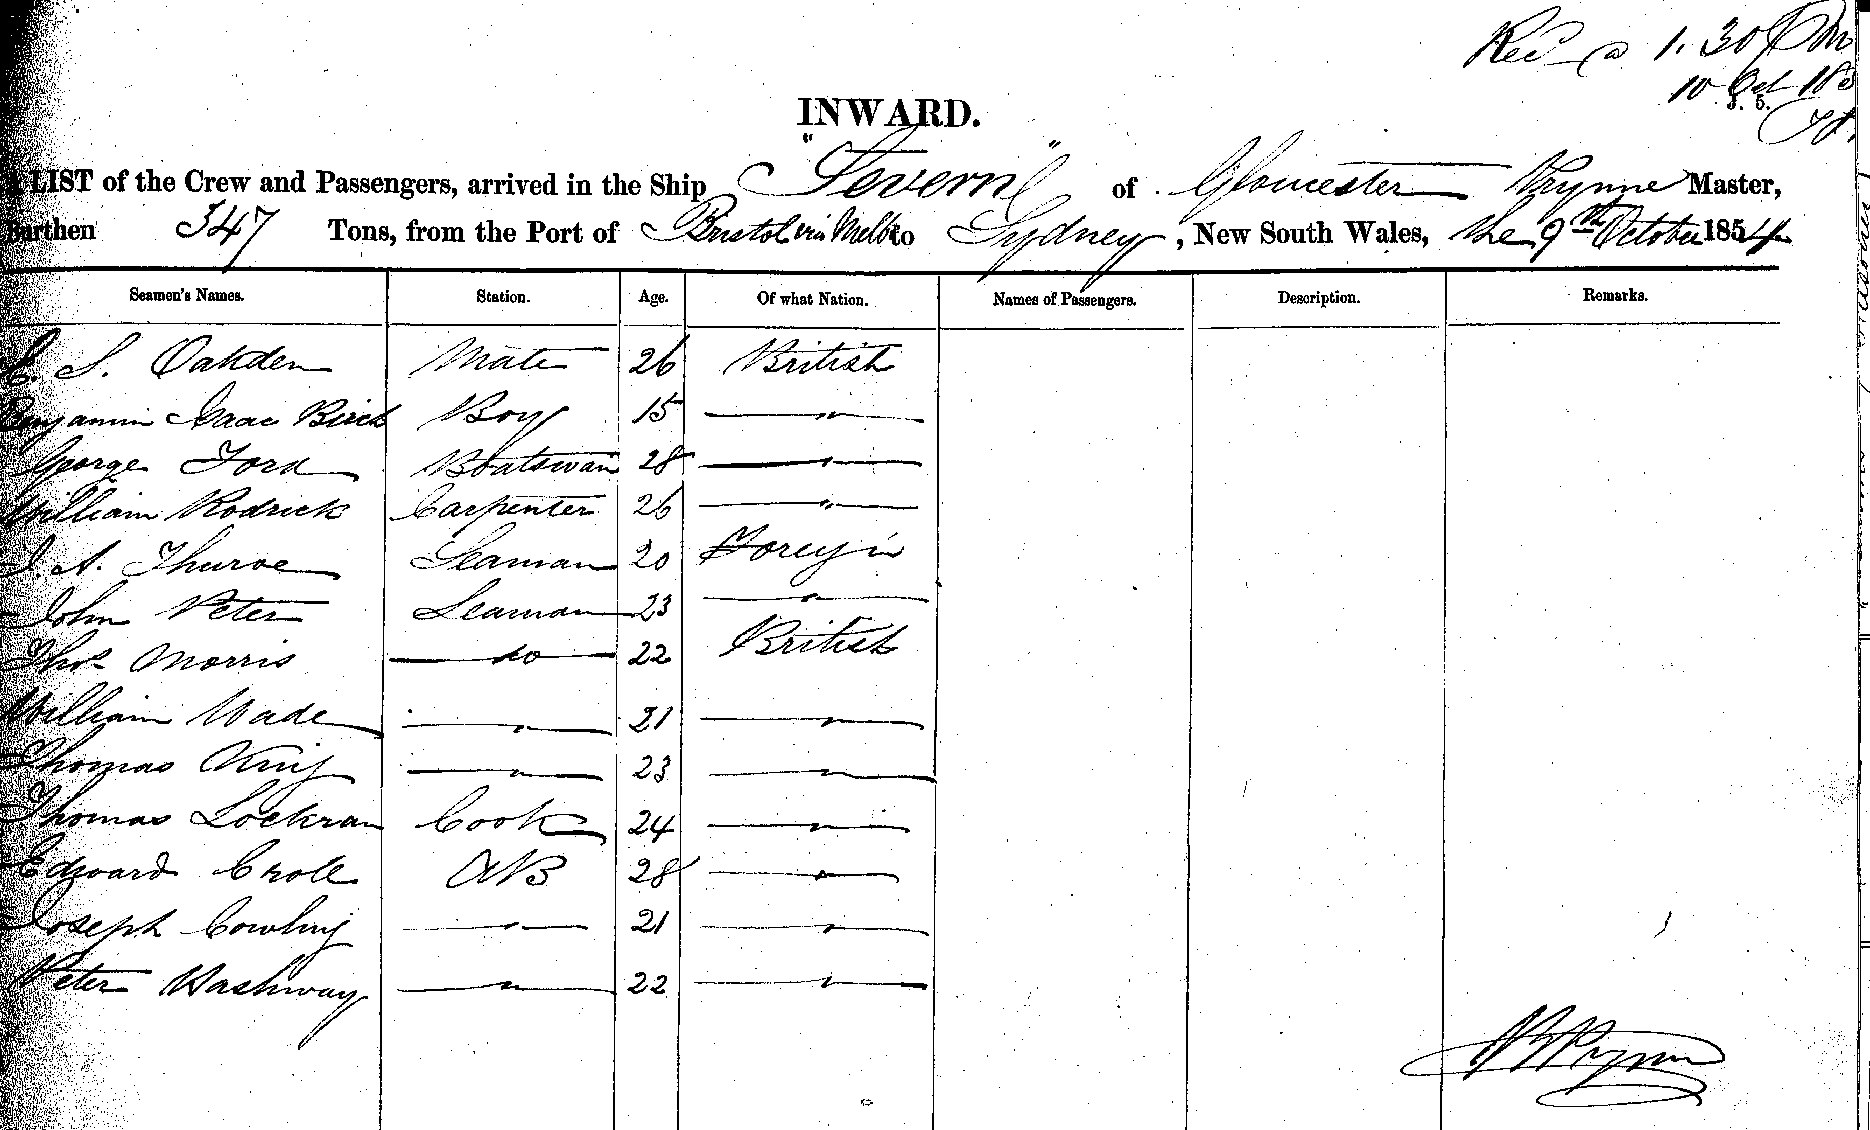 Recd @ 1.30 Pm
10 Oct 185
INWARD.
LIST of the Crew and Passengers, arrived in the Ship "Severn" of Gloucester Prynne Master,
Burthen 347 Tons, from the Port of Bristol via Melb to Sydney, New South Wales, the 9th October 1854
Seamen's Names. Station. Age. Of what Nation. Names of Passengers. Description. Remarks.
C. S. Oakden Mate 26 British
Benjamin Isaac Birch Boy 15 "
George Ford Boatswain 28 "
William Rodrick Carpenter 26 "
A. Thuroe Seaman 20 Foreign
John Peter Seaman 23 "
Thos Morris do 22 British
William Wade " 21 "
Thomas King " 23 "
Thomas Lockran Cook 24 "
Edward Croll AB 28 "
Joseph Cowling " 21 "
Peter Hashway " 22 "
Prynne